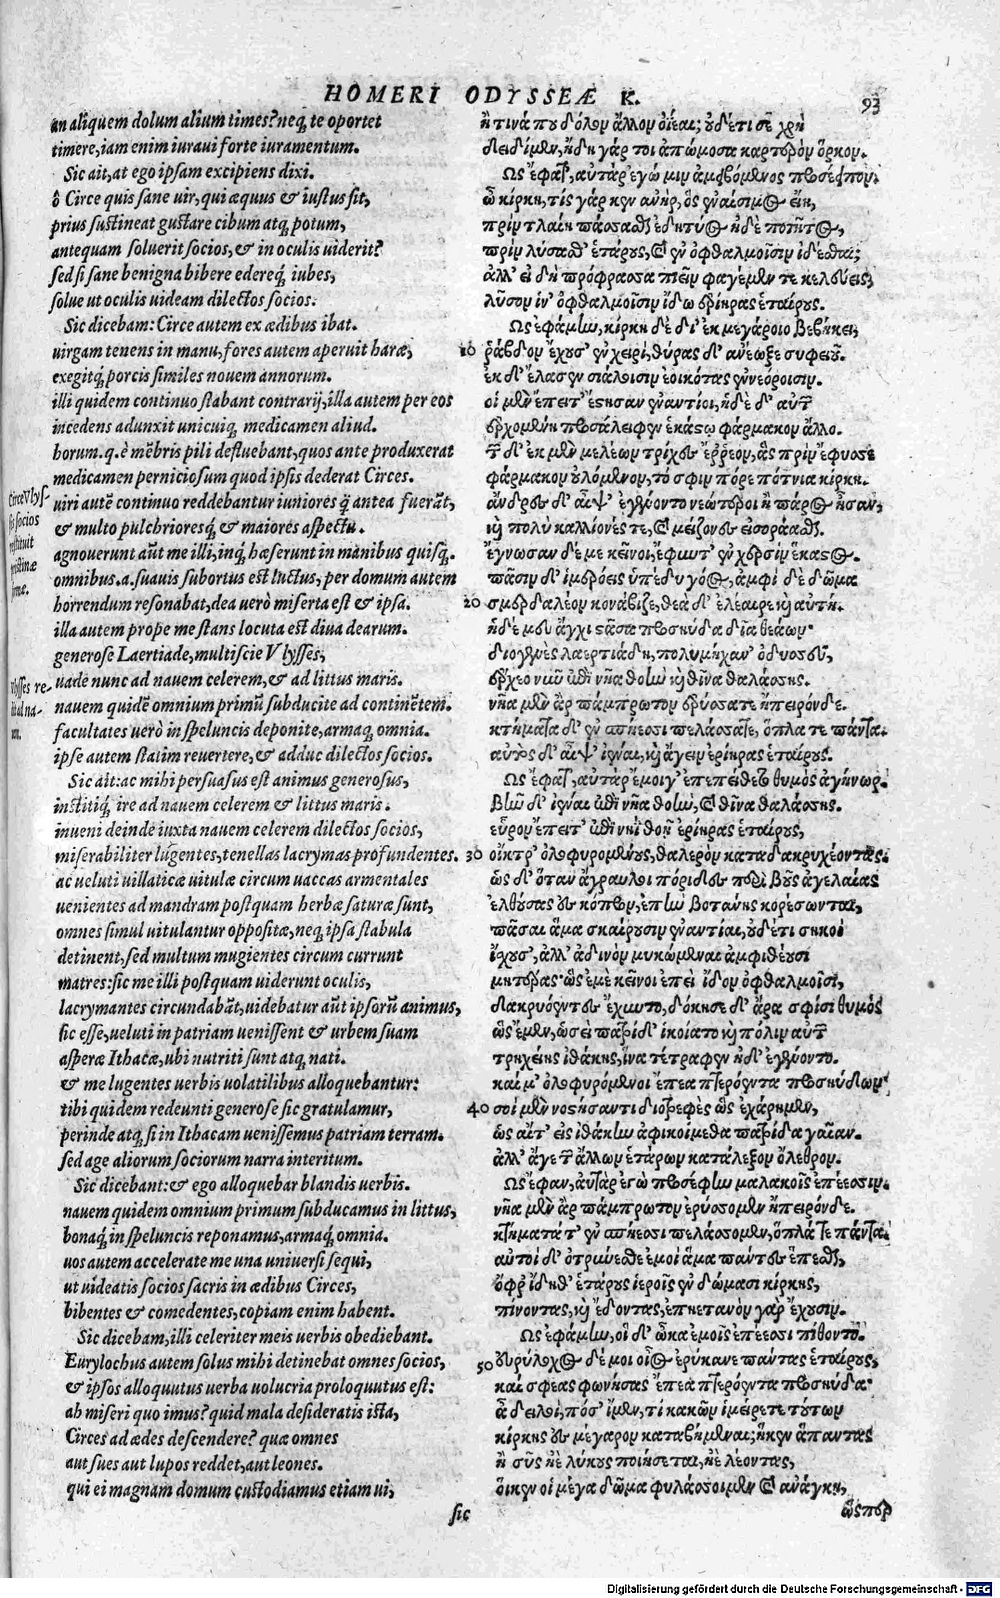 HOMERI ODYSSEÆ K.
93
an aliquem dolum alium times? neq; te oportet
timere, iam enim iuraui forte iuramentum.
Sic ait, at ego ipsam excipiens dixi.
ô Circe quis sane uir, qui æquus & iustus sit,
prius sustineat gustare cibum atq; potum,
antequam soluerit socios, & in oculis uiderit?
sed si sane benigna bibere edereq́; iubes,
solue ut oculis uideam dilectos socios.
Sic dicebam: Circe autem ex ædibus ibat.
uirgam tenens in manu, fores autem aperuit haræ,
exegitq́; porcis similes nouem annorum.
illi quidem continuo stabant contrarij, illa autem per eos
incedens adunxit unicuiq; medicamen aliud.
horum.q.è mẽbris pili defluebant, quos ante produxerat
medicamen perniciosum quod ipsis dederat Circes.
Circe Vlys-
sis socios
restituit
pristinæ
formæ.
uiri autẽ continuo reddebantur iuniores q̃ antea fuerãt,
& multo pulchrioresq́; & maiores aspectu.
agnouerunt aũt me illi, inq́; hæserunt in manibus quisq́;.
omnibus.a.suauis subortus est luctus, per domum autem
horrendum resonabat, dea uerò miserta est & ipsa.
illa autem prope me stans locuta est diua dearum.
generose Laertiade, multiscie Vlysses,
Vlysses re-
dit ad na-
uem.
uade nunc ad nauem celerem, & ad littus maris.
nauem quidẽ omnium primũ subducite ad continẽtem.
facultates uerò in speluncis deponite, armaq; omnia.
ipse autem statim reuertere, & adduc dilectos socios.
Sic ait: ac mihi persuasus est animus generosus,
institiq́; ire ad nauem celerem & littus maris.
inueni deinde iuxta nauem celerem dilectos socios,
miserabiliter lugentes, tenellas lacrymas profundentes.
ac ueluti uillaticæ uitulæ circum uaccas armentales
uenientes ad mandram postquam herbæ saturæ sunt,
omnes simul uitulantur oppositæ, neq; ipsa stabula
detinent, sed multum mugientes circum currunt
matres: sic me illi postquam uiderunt oculis,
lacrymantes circundabãt, uidebatur aũt ipsorũ animus,
sic esse, ueluti in patriam uenissent & urbem suam
asperæ Ithacæ, ubi nutriti sunt atq; nati.
& me lugentes uerbis uolatilibus alloquebantur:
tibi quidem redeunti generose sic gratulamur,
perinde atq; si in Ithacam uenissemus patriam terram.
sed age aliorum sociorum narra interitum.
Sic dicebant: & ego alloquebar blandis uerbis.
nauem quidem omnium primum subducamus in littus,
bonaq́; in speluncis reponamus, armaq́; omnia.
uos autem accelerate me una uniuersi sequi,
ut uideatis socios sacris in ædibus Circes,
bibentes & comedentes, copiam enim habent.
Sic dicebam, illi celeriter meis uerbis obediebant.
Eurylochus autem solus mihi detinebat omnes socios,
& ipsos alloquutus uerba uolucria proloquutus est:
ah miseri quo imus? quid mala desideratis ista,
Circes ad ædes descendere? quæ omnes
aut sues aut lupos reddet, aut leones.
qui ei magnam domum custodiamus etiam ui,
sic
ἤ τινά που δόλον ἄλλον ὀΐεαι; οὐδέ τι σὲ χρὴ
δειδίμεν, ἤδη γάρ τοι ἀπώμοσα καρτερὸν ὅρκον.
Ως ἔφατ', αὐτὰρ ἐγώ μιν ἀμειβόμενος προσέειπον.
ὦ κίρκη, τίς γάρ κεν ἀνὴρ, ὃς ἐναίσιμος εἴη,
πρίν τλαίη πάσασθαι ἐδητύος ἠδὲ ποτῆτος,
πρὶν λύσασθ' ἑτάρους, καὶ ἐν ὀφθαλμοῖσιν ἰδέσθαι;
ἀλλ' εἰ δὴ πρόφρασσα πιεῖν φαγέμεν τε κελεύεις,
λῦσον ἵν' ὀφθαλμοῖσιν ἴδω ἐρίηρας ἑταίρους.
Ως ἐφάμην, κίρκη δὲ δι' ἐκ μεγάροιο βεβήκει,
10 ῥάβδον ἔχουσ' ἐν χειρὶ, θύρας δ' ἀνέωξε συφειοῦ.
ἐκ δ' ἔλασεν σιάλοισιν ἐοικότας ἐννεόροισιν.
οἱ μὲν ἔπειτ' ἔστησαν ἐναντίοι, ἡ δὲ δι' αὐτῶν
ἐρχομένη προσάλειφεν ἑκάστῳ φάρμακον ἄλλο.
τῶν δ' ἐκ μὲν μελέων τρίχες ἔρρεον, ἃς πρὶν ἔφυσε
φάρμακον οὐλόμενον, τό σφιν πόρε πότνια κίρκη.
ἄνδρες δ' αἶψ' ἐγένοντο νεώτεροι ἢ πάρος ἦσαν,
καὶ πολὺ καλλίονές τε, καὶ μείζονες εἰσοράασθαι.
ἔγνωσαν δέ με κεῖνοι, ἔφυντ' ἐν χερσὶν ἕκαστος.
πᾶσιν δ' ἱμερόεις ὑπέδυ γόος, ἀμφὶ δὲ δῶμα
20 σμερδαλέον κονάβιζε, θεὰ δ' ἐλέαιρε καὶ αὐτή.
ἡ δέ μευ ἄγχι στᾶσα προσηύδα δῖα θεάων·
διογενὲς λαερτιάδη, πολυμήχαν' ὀδυσσεῦ,
ἔρχεο νῦν ἐπὶ νῆα θοὴν καὶ θῖνα θαλάσσης.
νῆα μὲν ἂρ πάμπρωτον ἐρύσσατε ἤπειρόνδε.
κτήματα δ' ἐν σπήεσσι πελάσσατε, ὅπλα τε πάντα.
αὐτὸς δ' αἶψ' ἰέναι, καὶ ἄγειν ἐρίηρας ἑταίρους.
Ως ἔφατ', αὐτὰρ ἔμοιγ' ἐπεπείθετο θυμὸς ἀγήνωρ.
βῆν δ' ἰέναι ἐπὶ νῆα θοὴν, καὶ θῖνα θαλάσσης.
εὗρον ἔπειτ' ἐπὶ νηῒ θοῇ ἐρίηρας ἑταίρους,
30 οἴκτρ' ὀλοφυρομένους, θαλερὸν κατὰ δακρυχέοντας.
ὡς δ' ὅταν ἄγραυλοι πόριδες περὶ βοῦς ἀγελαίας
ἐλθούσας ἐς κόπρον, ἐπὴν βοτάνης κορέσωνται,
πᾶσαι ἅμα σκαίρουσιν ἐναντίαι, οὐδέ τι σηκοὶ
ἴχουσ', ἀλλ' ἀδινὸν μυκώμεναι ἀμφιθέουσι
μητέρας· ὣς ἐμὲ κεῖνοι ἐπεὶ ἴδον ὀφθαλμοῖσι,
δακρυόεντες ἔχυντο, δόκησε δ' ἄρα σφίσι θυμὸς
ὣς ἔμεν, ὡσεὶ πατρίδ' ἱκοίατο καὶ πόλιν αὐτῶν
τρηχείης ἰθάκης, ἵνα τέτραφεν ἠδ' ἐγένοντο.
καί μ' ὀλοφυρόμενοι ἔπεα πτερόεντα προσηύδων·
40 σοὶ μὲν νοστήσαντι διοτρεφὲς ὣς ἐχάρημεν,
ὡς εἴτ' εἰς ἰθάκην ἀφικοίμεθα πατρίδα γαῖαν.
ἀλλ' ἄγε τῶν ἄλλων ἑτάρων κατάλεξον ὄλεθρον.
Ως ἔφαν, αὐτὰρ ἐγὼ προσέφην μαλακοῖς ἐπέεσσιν.
νῆα μὲν ἂρ πάμπρωτον ἐρύσσομεν ἤπειρόνδε.
κτήματά τ' ἐν σπήεσσι πελάσσομεν, ὅπλά τε πάντα.
αὐτοὶ δ' ὀτρύνεσθε ἐμοὶ ἅμα πάντες ἕπεσθαι,
ὄφρ' ἴδηθ' ἑτάρους ἱεροῖς ἐν δώμασι κίρκης,
πίνοντας, καὶ ἔδοντας, ἐπηετανὸν γὰρ ἔχουσιν.
Ως ἐφάμην, οἱ δ' ὦκα ἐμοῖς ἐπέεσσι πίθοντο.
50 εὐρύλοχος δέ μοι οἶος ἐρύκανε πάντας ἑταίρους,
καί σφεας φωνήσας ἔπεα πτερόεντα προσηύδα·
ἆ δειλοὶ, πόσ' ἴμεν, τί κακῶν ἱμείρετε τούτων
κίρκης ἐς μέγαρον καταβήμεναι; ἥ κεν ἅπαντας
ἢ σῦς ἠὲ λύκους ποιήσεται, ἠὲ λέοντας,
οἵ κεν οἱ μέγα δῶμα φυλάσσοιμεν καὶ ἀνάγκῃ,
ὥσπερ
Digitalisierung gefördert durch die Deutsche Forschungsgemeinschaft - DFG